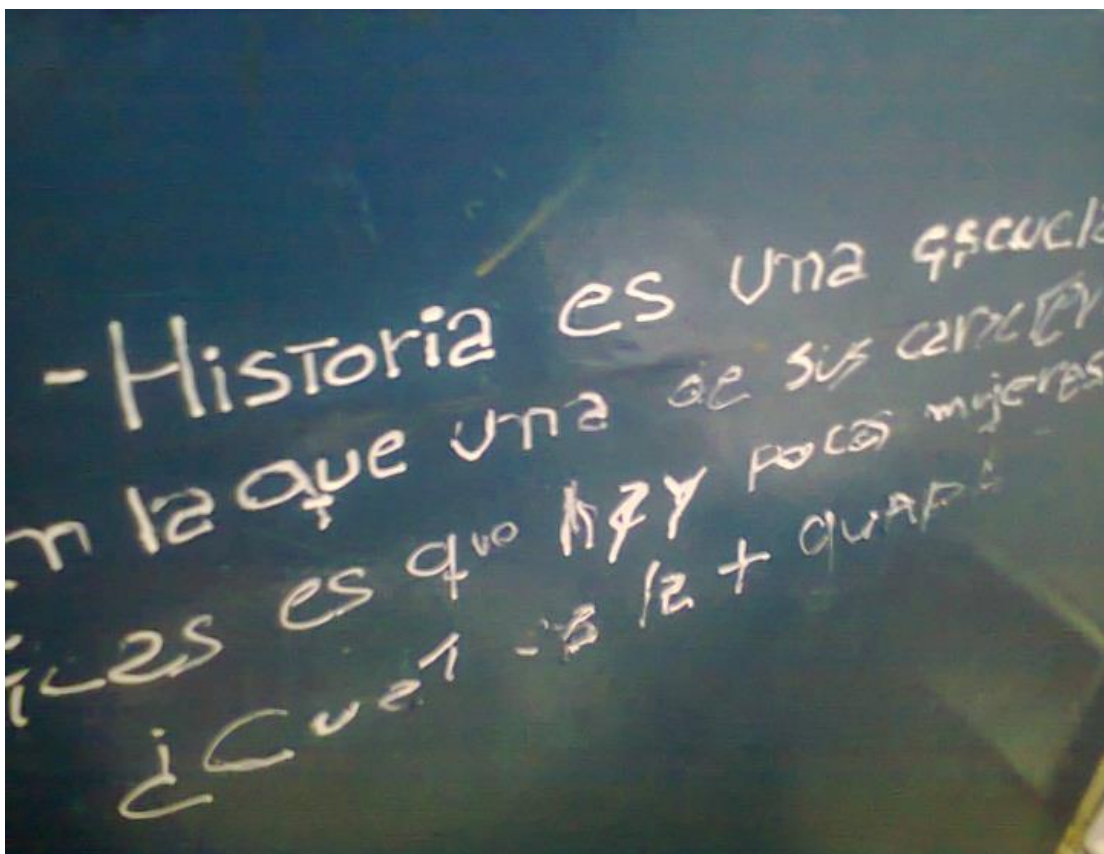 -Historia es una escuela
en la que una de sus caracter
ticas es que hay pocas mujeres
¿Cual es la + guapa